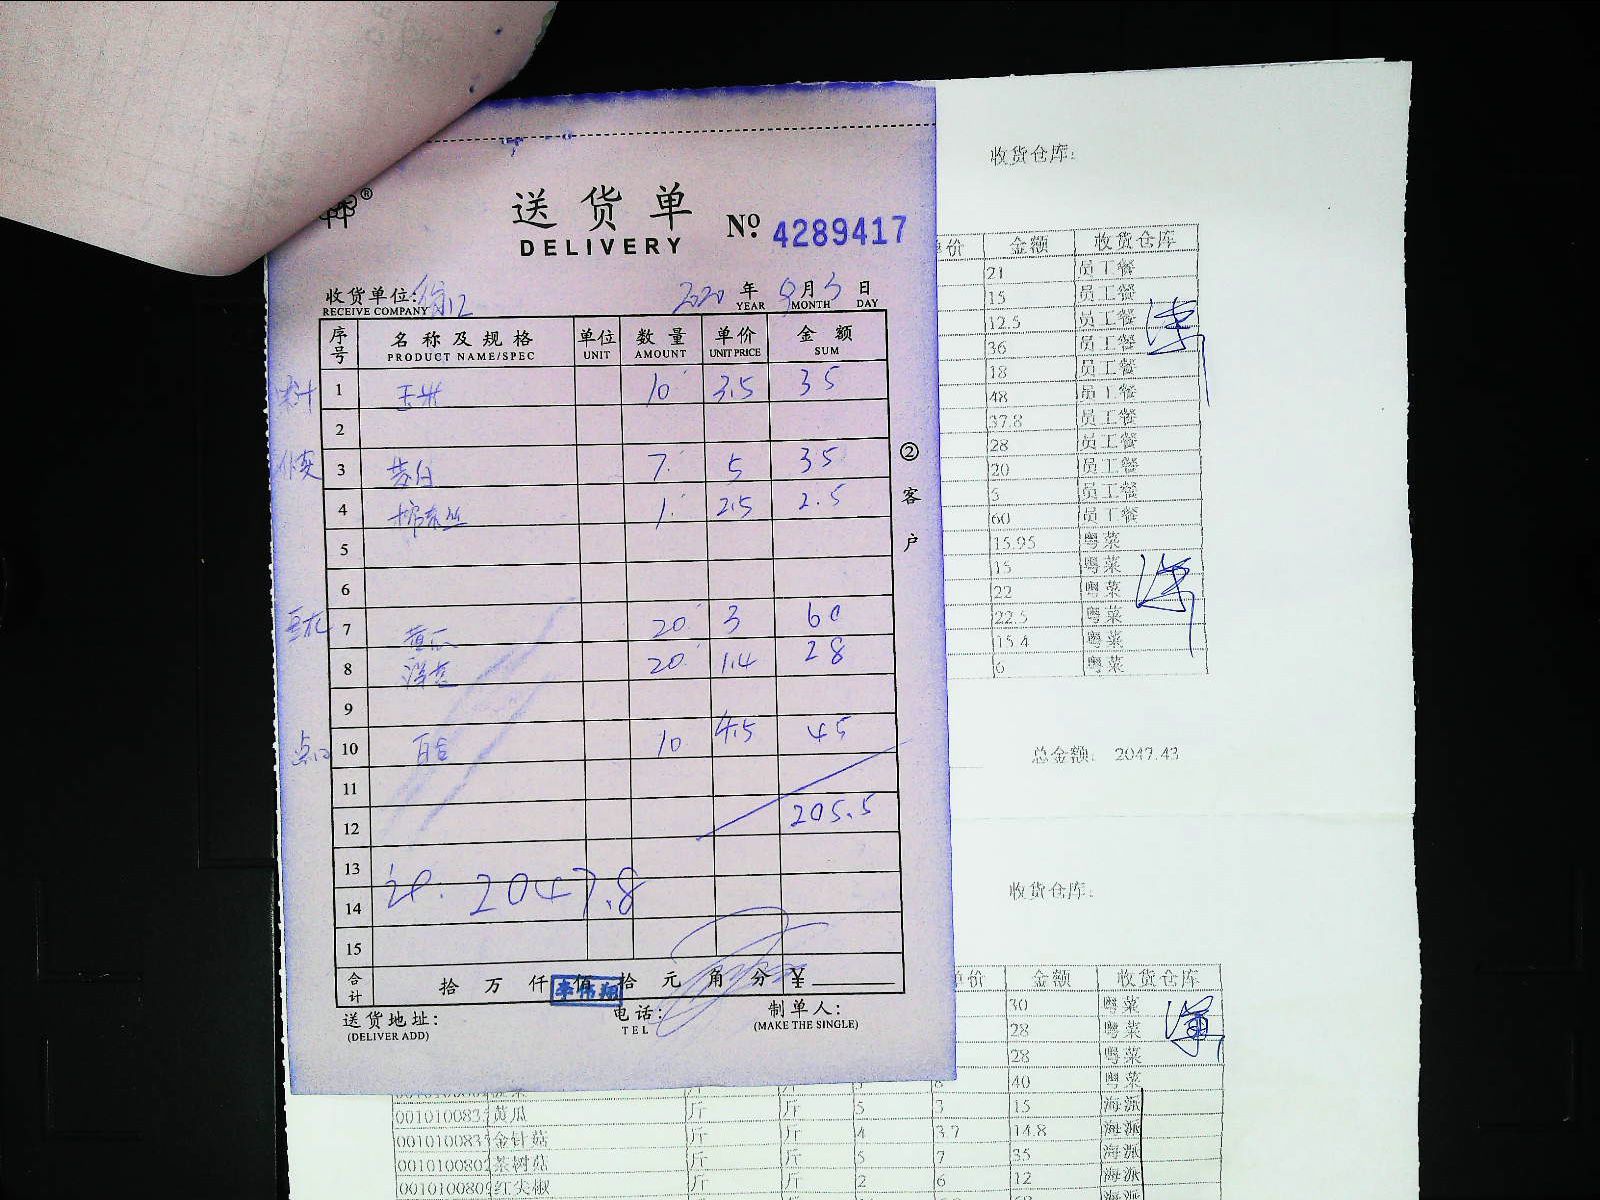 送货单
DELIVERY
No. 4289417
收货单位:
RECEIVE COMPANY
2020 年 9 月 3 日
YEAR MONTH DAY
序号 名称及规格 单位 数量 单价 金额
PRODUCT NAME/SPEC UNIT AMOUNT UNIT PRICE SUM
1 玉米 10 3.5 35
2
3 7 5 35
4 1 2.5 2.5
5
6
7 黄瓜 20 3 60
8 洋葱 20 1.4 28
9
10 百合 10 4.5 45
11
12 205.5
13
14 2047.8
15
合计 拾 万 仟 佰 拾 元 角 分 ¥
②客户
送货地址:
(DELIVER ADD)
电话:
TEL
制单人:
(MAKE THE SINGLE)
收货仓库:
单价 金额 收货仓库
21 员工餐
15 员工餐
12.5 员工餐
36 员工餐
18 员工餐
48 员工餐
37.8 员工餐
28 员工餐
20 员工餐
5 员工餐
60 员工餐
15.95 粤菜
15 粤菜
22 粤菜
22.5 粤菜
15.4 粤菜
6 粤菜
总金额: 2047.43
收货仓库:
单价 金额 收货仓库
30 粤菜
28 粤菜
28 粤菜
8 40 粤菜
黄瓜 斤 斤 5 3 15 海派
金针菇 斤 斤 4 3.7 14.8 海派
茶树菇 斤 斤 5 7 35 海派
红尖椒 斤 斤 2 6 12 海派